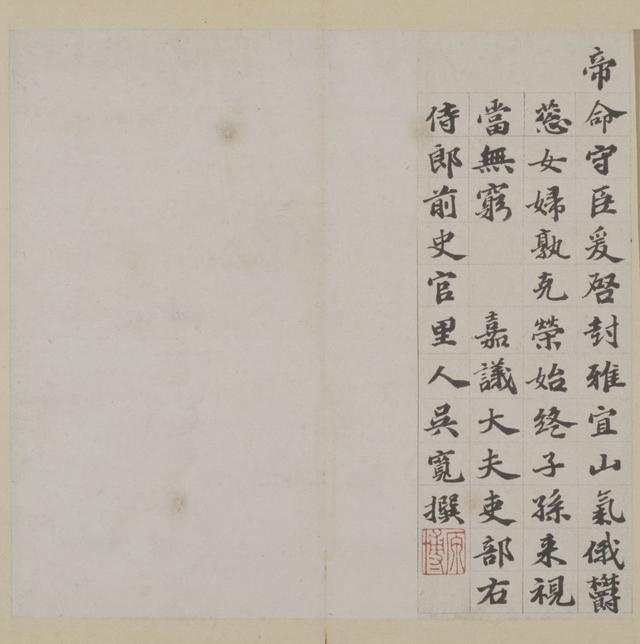 帝命守臣爰啓封雅宜山氣俄鬱
慈女婦孰克榮始終子孫来視
當無窮 嘉議大夫吏部右
侍郎前史官里人吳寬撰
原博